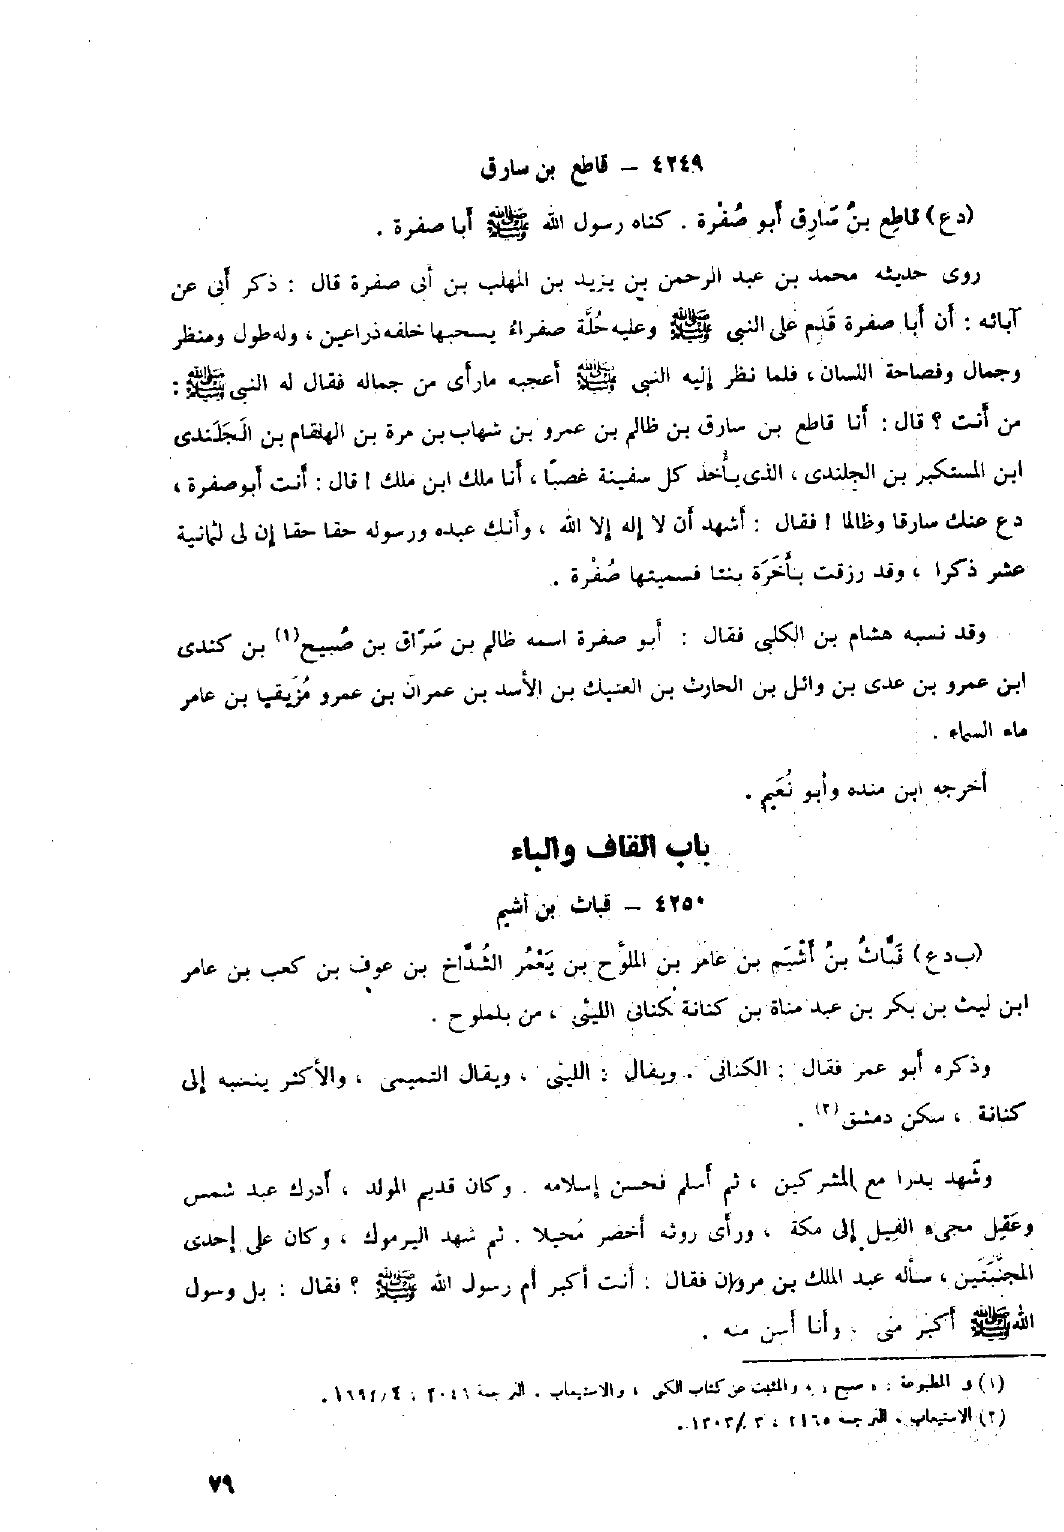 ٤٢٤٩ – قاطع بن سارق
(دع) قاطِع بنُ سَارِق أَبو صُفْرة . كناه رسول الله ﷺ أبا صفرة .
روى حديثه محمد بن عبد الرحمن بن يزيد بن المهلب بن أبى صفرة قال : ذكر أبى عن
آبائه : أن أبا صفرة قَدِم على النبى ﷺ وعليه حُلَّة صفراءُ يسحبها خلفه ذراعين ، وله طول ومنظر
وجمال وفصاحة اللسان ، فلما نظر إليه النبى ﷺ أعجبه مارأى من جماله فقال له النبى ﷺ :
من أنت ؟ قال : أنا قاطع بن سارق بن ظالم بن عمرو بن شهاب بن مرة بن الهلقام بن الجَلَندى
ابن المستكبر بن الجلندى ، الذى يأُخذ كل سفينة غصبًا ، أنا ملك ابن ملك ! قال : أنت أبوصفرة ،
دع عنك سارقا وظالما ! فقال : أشهد أن لا إله إلا الله ، وأنك عبده ورسوله حقا حقا إن لى لثمانية
عشر ذكرا ، وقد رزقت بأَخَرَة بنتا فسميتها صُفْرة .
وقد نسبه هشام بن الكلبى فقال : أبو صفرة اسمه ظالم بن سَرّاق بن صُبيح(١) بن كندى
ابن عمرو بن عدى بن وائل بن الحارث بن العتيك بن الأسد بن عمران بن عمرو مُزَيقيا بن عامر
ماء السماء .
أخرجه ابن منده وأبو نُعَيم .
باب القاف والباء
٤٢٥٠ – قباث بن أشيم
(ب دع) قَبَّاثُ بنُ أَشْيَم بن عامر بن الملوَّح بن يَعْمُر الشُدَّاخ بن عوف بن كعب بن عامر
ابن ليث بن بكر بن عبد مناة بن كنانة كنانى الليثى ، من بلملوح .
وذكره أبو عمر فقال : الكنانى . ويقال : الليثى ، ويقال التميمى ، والأكثر ينسبه إلى
كنانة ، سكن دمشق(٢) .
وشَهد بدرا مع المشركين ، ثم أسلم فحسن إسلامه . وكان قديم المولد ، أدرك عبد شمس
وعَقِل مجىء الفيل إلى مكة ، ورأى روثه أخضر مُحيلا . ثم شهد اليرموك ، وكان على إحدى
المجنَّبَتَين ، سأله عبد الملك بن مروان فقال : أنت أكبر أم رسول الله ﷺ ؟ فقال : بل رسول
الله ﷺ أكبر منى ، وأنا أسن منه .
(١) فى المطبوعة : « صبح » ، والمثبت عن كتاب الكنى ، والاستيعاب ، الترجمة ٣٠٤٦ : ١٦٩٢/٤ .
(٢) الاستيعاب ، الترجمة ٢١٦٥ ، ١٣٠٣/٣ .
٧٩